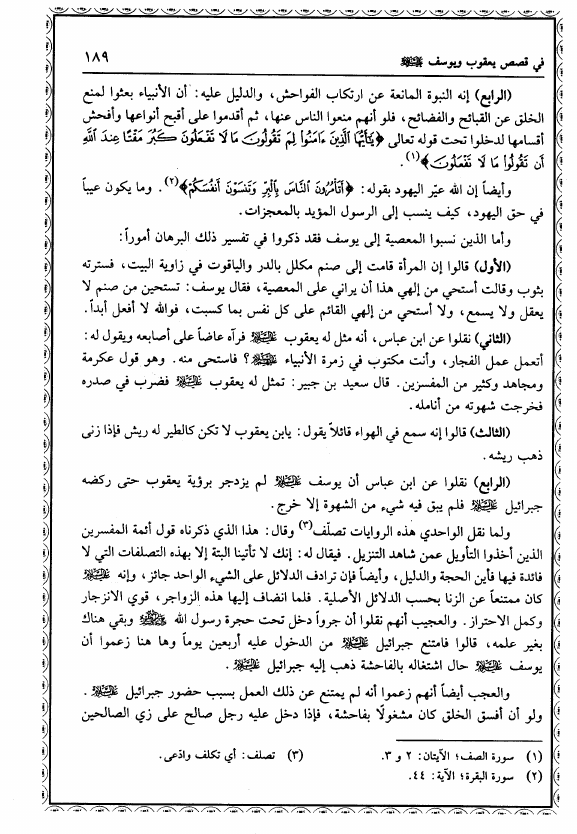 في قصص يعقوب ويوسف عليهما السلام ١٨٩
(الرابع) إنه النبوة المانعة عن ارتكاب الفواحش، والدليل عليه: أن الأنبياء بعثوا لمنع
الخلق عن القبائح والفضائح، فلو أنهم منعوا الناس عنها، ثم أقدموا على أقبح أنواعها وأفحش
أقسامها لدخلوا تحت قوله تعالى ﴿يَٰٓأَيُّهَا ٱلَّذِينَ ءَامَنُوا۟ لِمَ تَقُولُونَ مَا لَا تَفْعَلُونَ كَبُرَ مَقْتًا عِندَ ٱللَّهِ
أَن تَقُولُوا۟ مَا لَا تَفْعَلُونَ﴾(١).
وأيضاً إن الله عيّر اليهود بقوله: ﴿أَتَأْمُرُونَ ٱلنَّاسَ بِٱلْبِرِّ وَتَنسَوْنَ أَنفُسَكُمْ﴾(٢). وما يكون عيباً
في حق اليهود، كيف ينسب إلى الرسول المؤيد بالمعجزات.
وأما الذين نسبوا المعصية إلى يوسف فقد ذكروا في تفسير ذلك البرهان أموراً:
(الأول) قالوا إن المرأة قامت إلى صنم مكلل بالدر والياقوت في زاوية البيت، فسترته
بثوب وقالت أستحي من إلهي هذا أن يراني على المعصية، فقال يوسف: تستحين من صنم لا
يعقل ولا يسمع، ولا أستحي من إلهي القائم على كل نفس بما كسبت، فوالله لا أفعل أبداً.
(الثاني) نقلوا عن ابن عباس، أنه مثل له يعقوب عليه السلام فرآه عاضاً على أصابعه ويقول له:
أتعمل عمل الفجار، وأنت مكتوب في زمرة الأنبياء عليهم السلام؟ فاستحى منه. وهو قول عكرمة
ومجاهد وكثير من المفسرين. قال سعيد بن جبير: تمثل له يعقوب عليه السلام فضرب في صدره
فخرجت شهوته من أنامله.
(الثالث) قالوا إنه سمع في الهواء قائلاً يقول: يابن يعقوب لا تكن كالطير له ريش فإذا زنى
ذهب ريشه.
(الرابع) نقلوا عن ابن عباس أن يوسف عليه السلام لم يزدجر برؤية يعقوب حتى ركضه
جبرائيل عليه السلام فلم يبق فيه شيء من الشهوة إلا خرج.
ولما نقل الواحدي هذه الروايات تصلّف(٣) وقال: هذا الذي ذكرناه قول أئمة المفسرين
الذين أخذوا التأويل عمن شاهد التنزيل. فيقال له: إنك لا تأتينا البتة إلا بهذه التصلفات التي لا
فائدة فيها فأين الحجة والدليل، وأيضاً فإن ترادف الدلائل على الشيء الواحد جائز، وإنه عليه السلام
كان ممتنعاً عن الزنا بحسب الدلائل الأصلية. فلما انضاف إليها هذه الزواجر، قوي الانزجار
وكمل الاحتراز. والعجيب أنهم نقلوا أن جرواً دخل تحت حجرة رسول الله ﷺ وبقي هناك
بغير علمه، قالوا فامتنع جبرائيل عليه السلام من الدخول عليه أربعين يوماً وها هنا زعموا أن
يوسف عليه السلام حال اشتغاله بالفاحشة ذهب إليه جبرائيل عليه السلام.
والعجب أيضاً أنهم زعموا أنه لم يمتنع عن ذلك العمل بسبب حضور جبرائيل عليه السلام.
ولو أن أفسق الخلق كان مشغولًا بفاحشة، فإذا دخل عليه رجل صالح على زي الصالحين
(١) سورة الصف؛ الآيتان: ٢ و٣.
(٢) سورة البقرة؛ الآية: ٤٤.
(٣) تصلف: أي تكلف وادّعى.